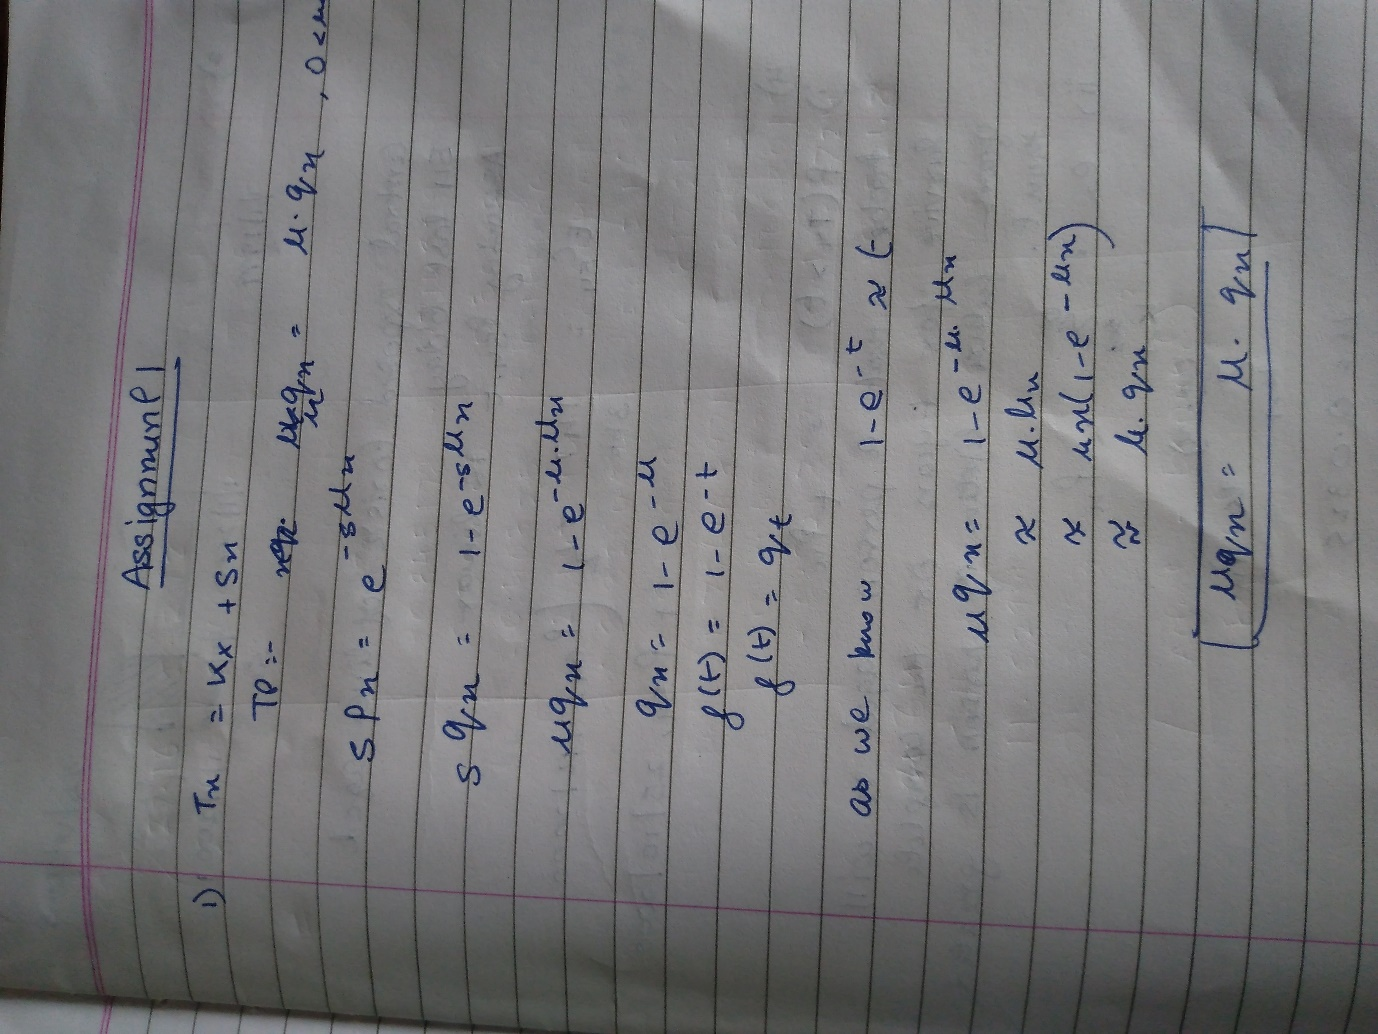 Assignment 1
1) Tx = Kx + Sx
TP :- uqx = u.qx , 0 < u
sPx = e^-sux
sqx = 1 - e^-sux
uqx = 1 - e^-u.ux
qx = 1 - e^-u
f(t) = 1 - e^-t
f(t) = qt
as we know 1 - e^-t ≈ t
uqx = 1 - e^-u.ux
≈ u.ux
≈ ux(1 - e^-ux)
≈ u.qx
uqx = u.qx